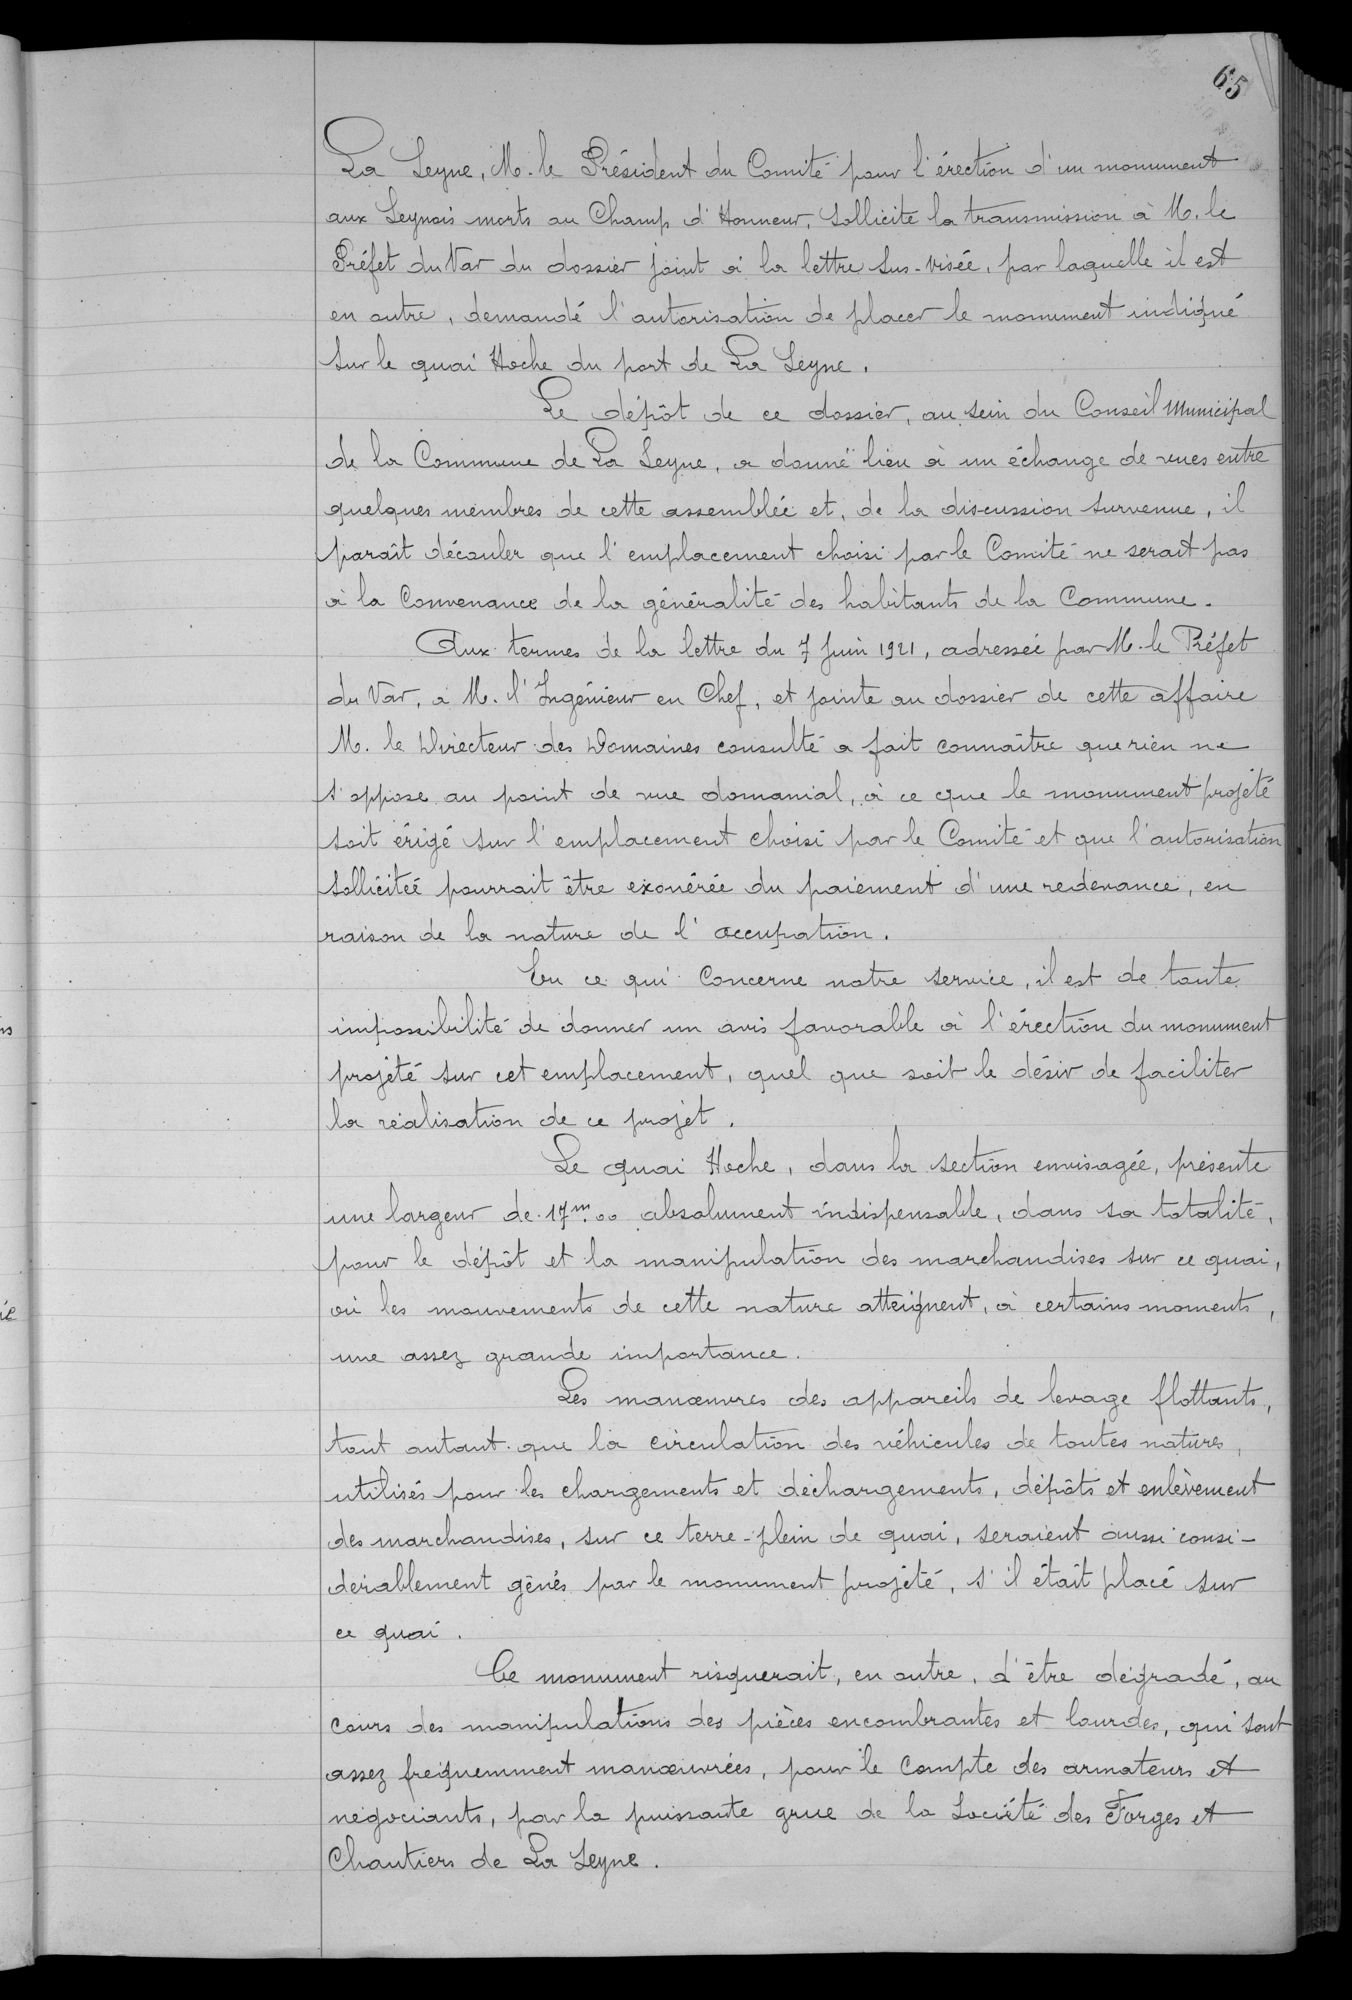 65
La Seyne, M. le Président du Comité pour l'érection d'un monument
aux Seynois morts au Champ d'Honneur, sollicite la transmission à M. le
Préfet du Var du dossier joint à la lettre sus-visée, par laquelle il est
en outre, demandé l'autorisation de placer le monument indiqué
sur le quai Hoche du port de La Seyne.
Le dépôt de ce dossier, au sein du Conseil Municipal
de la Commune de La Seyne, a donné lieu à un échange de vues entre
quelques membres de cette assemblée et, de la discussion survenue, il
paraît découler que l'emplacement choisi par le Comité ne serait pas
à la Convenance de la généralité des habitants de la Commune.
Aux termes de la lettre du 7 Juin 1921, adressée par M. le Préfet
du Var, à M. l'Ingénieur en Chef, et jointe au dossier de cette affaire
M. le Directeur des Domaines consulté a fait connaître que rien ne
s'oppose au point de vue domanial, à ce que le monument projeté
soit érigé sur l'emplacement choisi par le Comité et que l'autorisation
sollicitée pourrait être exonérée du paiement d'une redevance, en
raison de la nature de l'occupation.
En ce qui Concerne notre service, il est de toute
impossibilité de donner un avis favorable à l'érection du monument
projeté sur cet emplacement, quel que soit le désir de faciliter
la réalisation de ce projet.
Le quai Hoche, dans la section envisagée, présente
une largeur de 17m.00 absolument indispensable, dans sa totalité,
pour le dépôt et la manipulation des marchandises sur ce quai,
où les mouvements de cette nature atteignent, à certains moments,
une assez grande importance.
Les manœuvres des appareils de levage flottants,
tout autant que la circulation des véhicules de toutes natures,
utilisés pour les chargements et déchargements, dépôts et enlèvement
des marchandises, sur ce terre-plein de quai, seraient aussi consi-
dérablement gênés par le monument projeté, s'il était placé sur
ce quai.
Ce monument risquerait, en outre, d'être dégradé, au
cours des manipulations des pièces encombrantes et lourdes, qui sont
assez fréquemment manœuvrées, pour le Compte des armateurs et
négociants, par la puissante grue de la Société des Forges et
Chantiers de La Seyne.